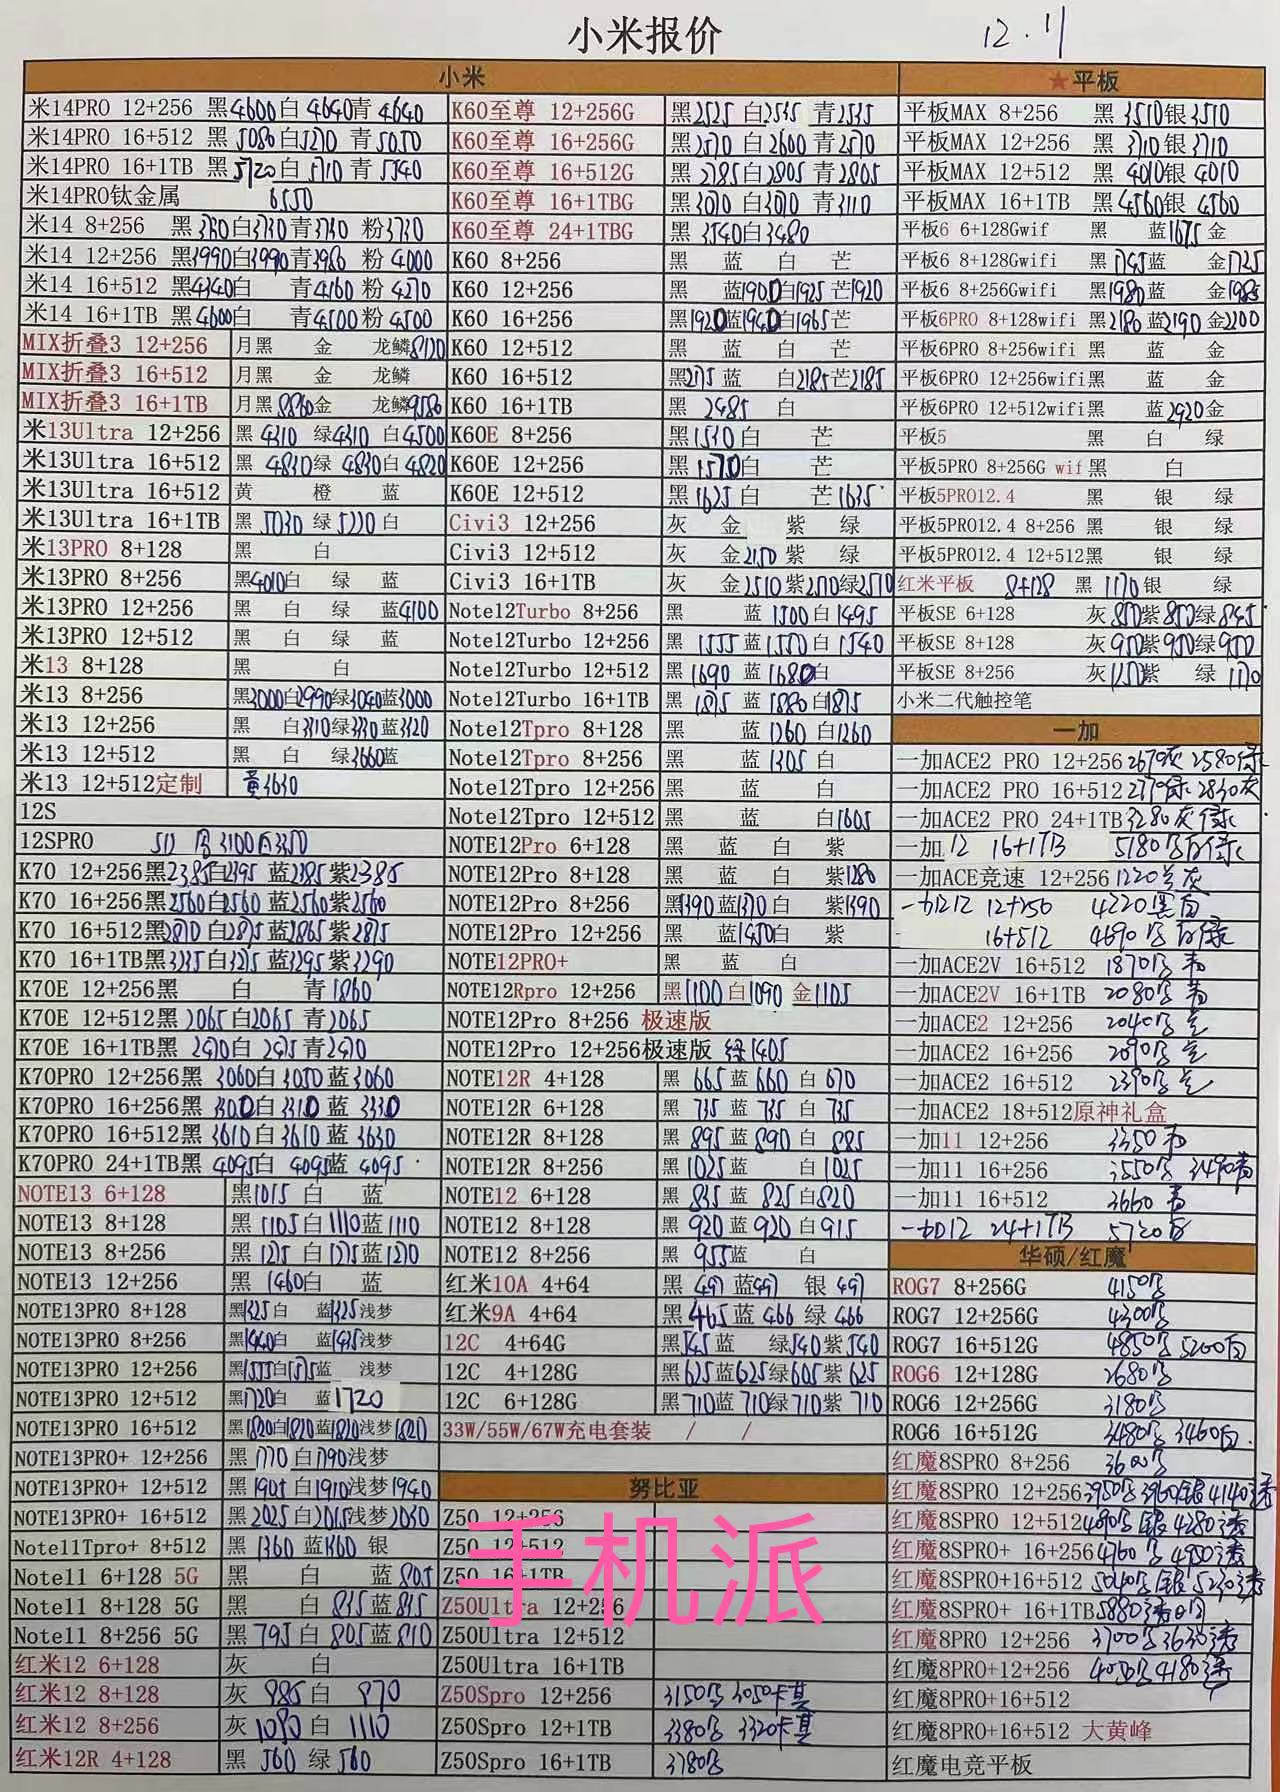 小米报价 12.11
小米
米14PRO 12+256 黑4600白4640青4640
米14PRO 16+512 黑5080白5270青5050
米14PRO 16+1TB 黑5720白 青5540
米14PRO钛金属 6550
米14 8+256 黑 白3730青3730 粉3730
米14 12+256 黑3990白3990青3980 粉4000
米14 16+512 黑4340白 青4160 粉4270
米14 16+1TB 黑4600白 青4500粉4500
MIX折叠3 12+256 月黑 金 龙鳞8120
MIX折叠3 16+512 月黑 金 龙鳞
MIX折叠3 16+1TB 月黑8860金 龙鳞9580
米13Ultra 12+256 黑4310 绿4310 白4500
米13Ultra 16+512 黑4830绿4830白4820
米13Ultra 16+512 黄 橙 蓝
米13Ultra 16+1TB 黑5030 绿5220白
米13PRO 8+128 黑 白
米13PRO 8+256 黑4010白 绿 蓝
米13PRO 12+256 黑 白 绿 蓝4100
米13PRO 12+512 黑 白 绿 蓝
米13 8+128 黑 白
米13 8+256 黑3000白2990绿3040蓝3000
米13 12+256 黑 白3310绿3330蓝3320
米13 12+512 黑 白 绿3660蓝
米13 12+512定制 黄3630
12S
12SPRO 512 黑3100白3350
K70 12+256黑2385白2395 蓝2385紫2385
K70 16+256黑2560白2560 蓝2560紫2560
K70 16+512黑2870白2875蓝2865紫2875
K70 16+1TB黑 白 蓝3295紫3290
K70E 12+256黑 白 青1860
K70E 12+512黑2065白2065 青2065
K70E 16+1TB黑 白 青
K70PRO 12+256黑3060白3050蓝3060
K70PRO 16+256黑3300白3310 蓝3330
K70PRO 16+512黑3610白3610 蓝3630
K70PRO 24+1TB黑4095白4095蓝4095
NOTE13 6+128 黑1015 白 蓝
NOTE13 8+128 黑1105白1110蓝1110
NOTE13 8+256 黑1275 白1275蓝1270
NOTE13 12+256 黑1460白 蓝
NOTE13PRO 8+128 黑1325白 蓝1325浅梦
NOTE13PRO 8+256 黑1440白 蓝 浅梦
NOTE13PRO 12+256 黑1555白1575蓝 浅梦
NOTE13PRO 12+512 黑1720白 蓝1720
NOTE13PRO 16+512 黑1820白1820蓝1820浅梦1820
NOTE13PRO+ 12+256 黑1770白1790浅梦
NOTE13PRO+ 12+512 黑1905白1910浅梦1940
NOTE13PRO+ 16+512 黑2025白2015浅梦2030
Note11Tpro+ 8+512 黑1360蓝1360 银
Note11 6+128 5G 黑 白 蓝805
Note11 8+128 5G 黑 白835蓝835
Note11 8+256 5G 黑795白805蓝810
红米12 6+128 灰 白
红米12 8+128 灰885白870
红米12 8+256 灰1090白1110
红米12R 4+128 黑560 绿560
K60至尊 12+256G 黑2525 白2535 青2535
K60至尊 16+256G 黑2570白2600青2570
K60至尊 16+512G 黑2785白2805青2805
K60至尊 16+1TBG 黑3070白3070 青3110
K60至尊 24+1TBG 黑3540白3480
K60 8+256 黑 蓝 白 芒
K60 12+256 黑 蓝1900白1925芒1920
K60 16+256 黑1920蓝1940白1965芒
K60 12+512 黑 蓝 白 芒
K60 16+512 黑2175蓝 白2185芒2185
K60 16+1TB 黑2485 白
K60E 8+256 黑1530白 芒
K60E 12+256 黑1570白 芒
K60E 12+512 黑1625白 芒1635
Civi3 12+256 灰 金 紫 绿
Civi3 12+512 灰 金2150紫 绿
Civi3 16+1TB 灰 金2510紫2510绿2510
Note12Turbo 8+256 黑 蓝1500白1495
Note12Turbo 12+256 黑1555蓝1550白1540
Note12Turbo 12+512 黑1690 蓝1680白
Note12Turbo 16+1TB 黑1875 蓝1880白1875
Note12Tpro 8+128 黑 蓝1260 白1260
Note12Tpro 8+256 黑 蓝1305白
Note12Tpro 12+256 黑 蓝 白
Note12Tpro 12+512 黑 蓝 白1605
NOTE12Pro 6+128 黑 蓝 白 紫
NOTE12Pro 8+128 黑 蓝 白 紫1280
NOTE12Pro 8+256 黑1390蓝1370白 紫1390
NOTE12Pro 12+256 黑 蓝1450白 紫
NOTE12PRO+ 黑 蓝 白
NOTE12Rpro 12+256 黑1100白1090 金1105
NOTE12Pro 8+256 极速版
NOTE12Pro 12+256极速版 绿1405
NOTE12R 4+128 黑665蓝660 白670
NOTE12R 6+128 黑735蓝735 白735
NOTE12R 8+128 黑895蓝890 白885
NOTE12R 8+256 黑1025蓝 白1025
NOTE12 6+128 黑835蓝825白820
NOTE12 8+128 黑920蓝920白915
NOTE12 8+256 黑955蓝 白
红米10A 4+64 黑497蓝497 银497
红米9A 4+64 黑465蓝466 绿466
12C 4+64G 黑545蓝 绿540紫540
12C 4+128G 黑625蓝625绿605紫625
12C 6+128G 黑710蓝710绿710紫710
33W/55W/67W充电套装 / /
努比亚
Z50 12+256
Z50 12+512
Z50 16+1TB
Z50Ultra 12+256
Z50Ultra 12+512
Z50Ultra 16+1TB
Z50Spro 12+256 3150黑 3050卡其
Z50Spro 12+1TB 3380黑 3320卡其
Z50Spro 16+1TB 3780黑
★平板
平板MAX 8+256 黑3510银3510
平板MAX 12+256 黑3710银3710
平板MAX 12+512 黑4010银4010
平板MAX 16+1TB 黑4560银4560
平板6 6+128Gwif 黑 蓝1675金
平板6 8+128Gwifi 黑1745蓝 金1725
平板6 8+256Gwifi 黑1980蓝 金1985
平板6PRO 8+128wifi 黑2180蓝2190金2200
平板6PRO 8+256wifi 黑 蓝 金
平板6PRO 12+256wifi黑 蓝 金
平板6PRO 12+512wifi黑 蓝2920金
平板5 黑 白 绿
平板5PRO 8+256G wif黑 白
平板5PRO12.4 黑 银 绿
平板5PRO12.4 8+256 黑 银 绿
平板5PRO12.4 12+512黑 银 绿
红米平板 8+128 黑1170银 绿
平板SE 6+128 灰850紫850绿845
平板SE 8+128 灰950紫950绿950
平板SE 8+256 灰1150紫 绿1170
小米二代触控笔
一加
一加ACE2 PRO 12+256 2670灰 2580绿
一加ACE2 PRO 16+512 绿2830灰
一加ACE2 PRO 24+1TB 3280灰绿
一加12 16+1TB 5180黑白绿
一加ACE竞速 12+256 1220 灰
一加12 12+256 4220黑白
16+512 4690黑白绿
一加ACE2V 16+512 1870黑青
一加ACE2V 16+1TB 2080黑青
一加ACE2 12+256 2040黑
一加ACE2 16+256 2090黑
一加ACE2 16+512 2390黑
一加ACE2 18+512原神礼盒
一加11 12+256 3350
一加11 16+256 3550黑 3490青
一加11 16+512 3660青
一加12 24+1TB 5720白
华硕/红魔
ROG7 8+256G 4150黑
ROG7 12+256G 4300黑
ROG7 16+512G 4850黑 5200白
ROG6 12+128G 2680黑
ROG6 12+256G 3180黑
ROG6 16+512G 3480黑 3460白
红魔8SPRO 8+256 3600黑
红魔8SPRO 12+256 3950黑3960银4140透
红魔8SPRO 12+512 4090黑 银 4280透
红魔8SPRO+ 16+256 4760黑 4950透
红魔8SPRO+16+512 5040黑 银 5230透
红魔8SPRO+ 16+1TB 5880透
红魔8PRO 12+256 3700黑3630透
红魔8PRO+12+256 4050黑4180透
红魔8PRO+16+512
红魔8PRO+16+512 大黄峰
红魔电竞平板
手机派